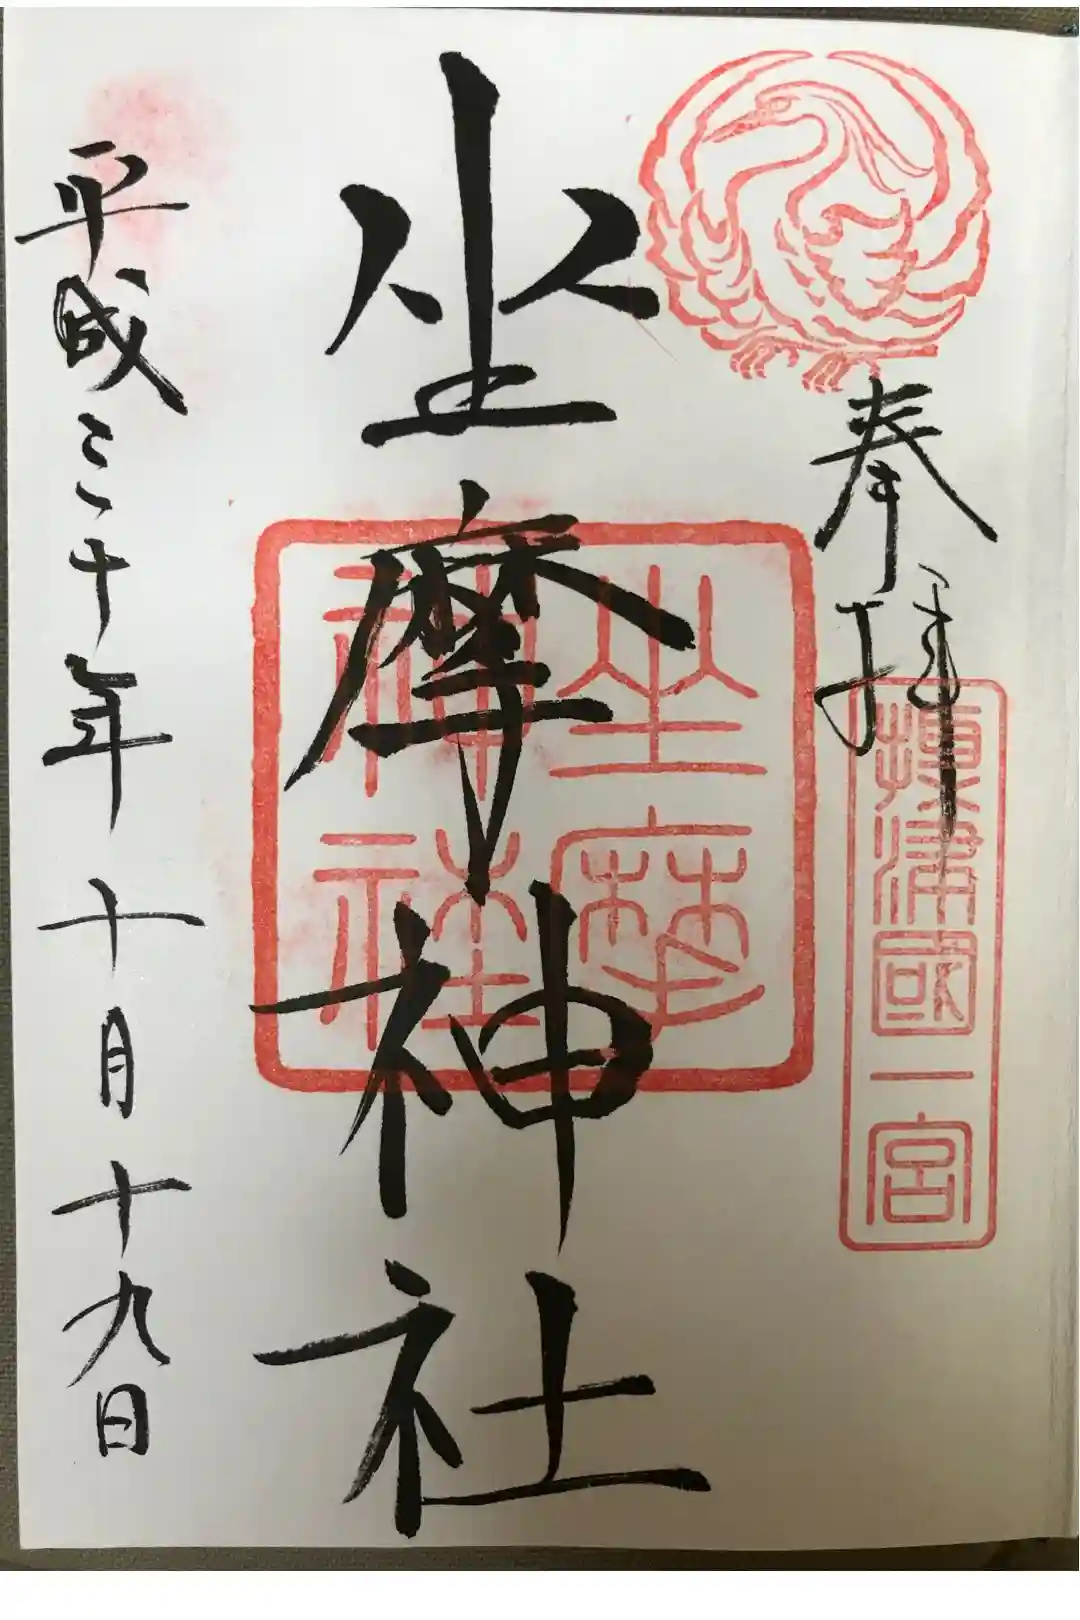 奉拝
摂津國一宮
坐摩神社
坐摩
神社
平成三十年 十月十九日